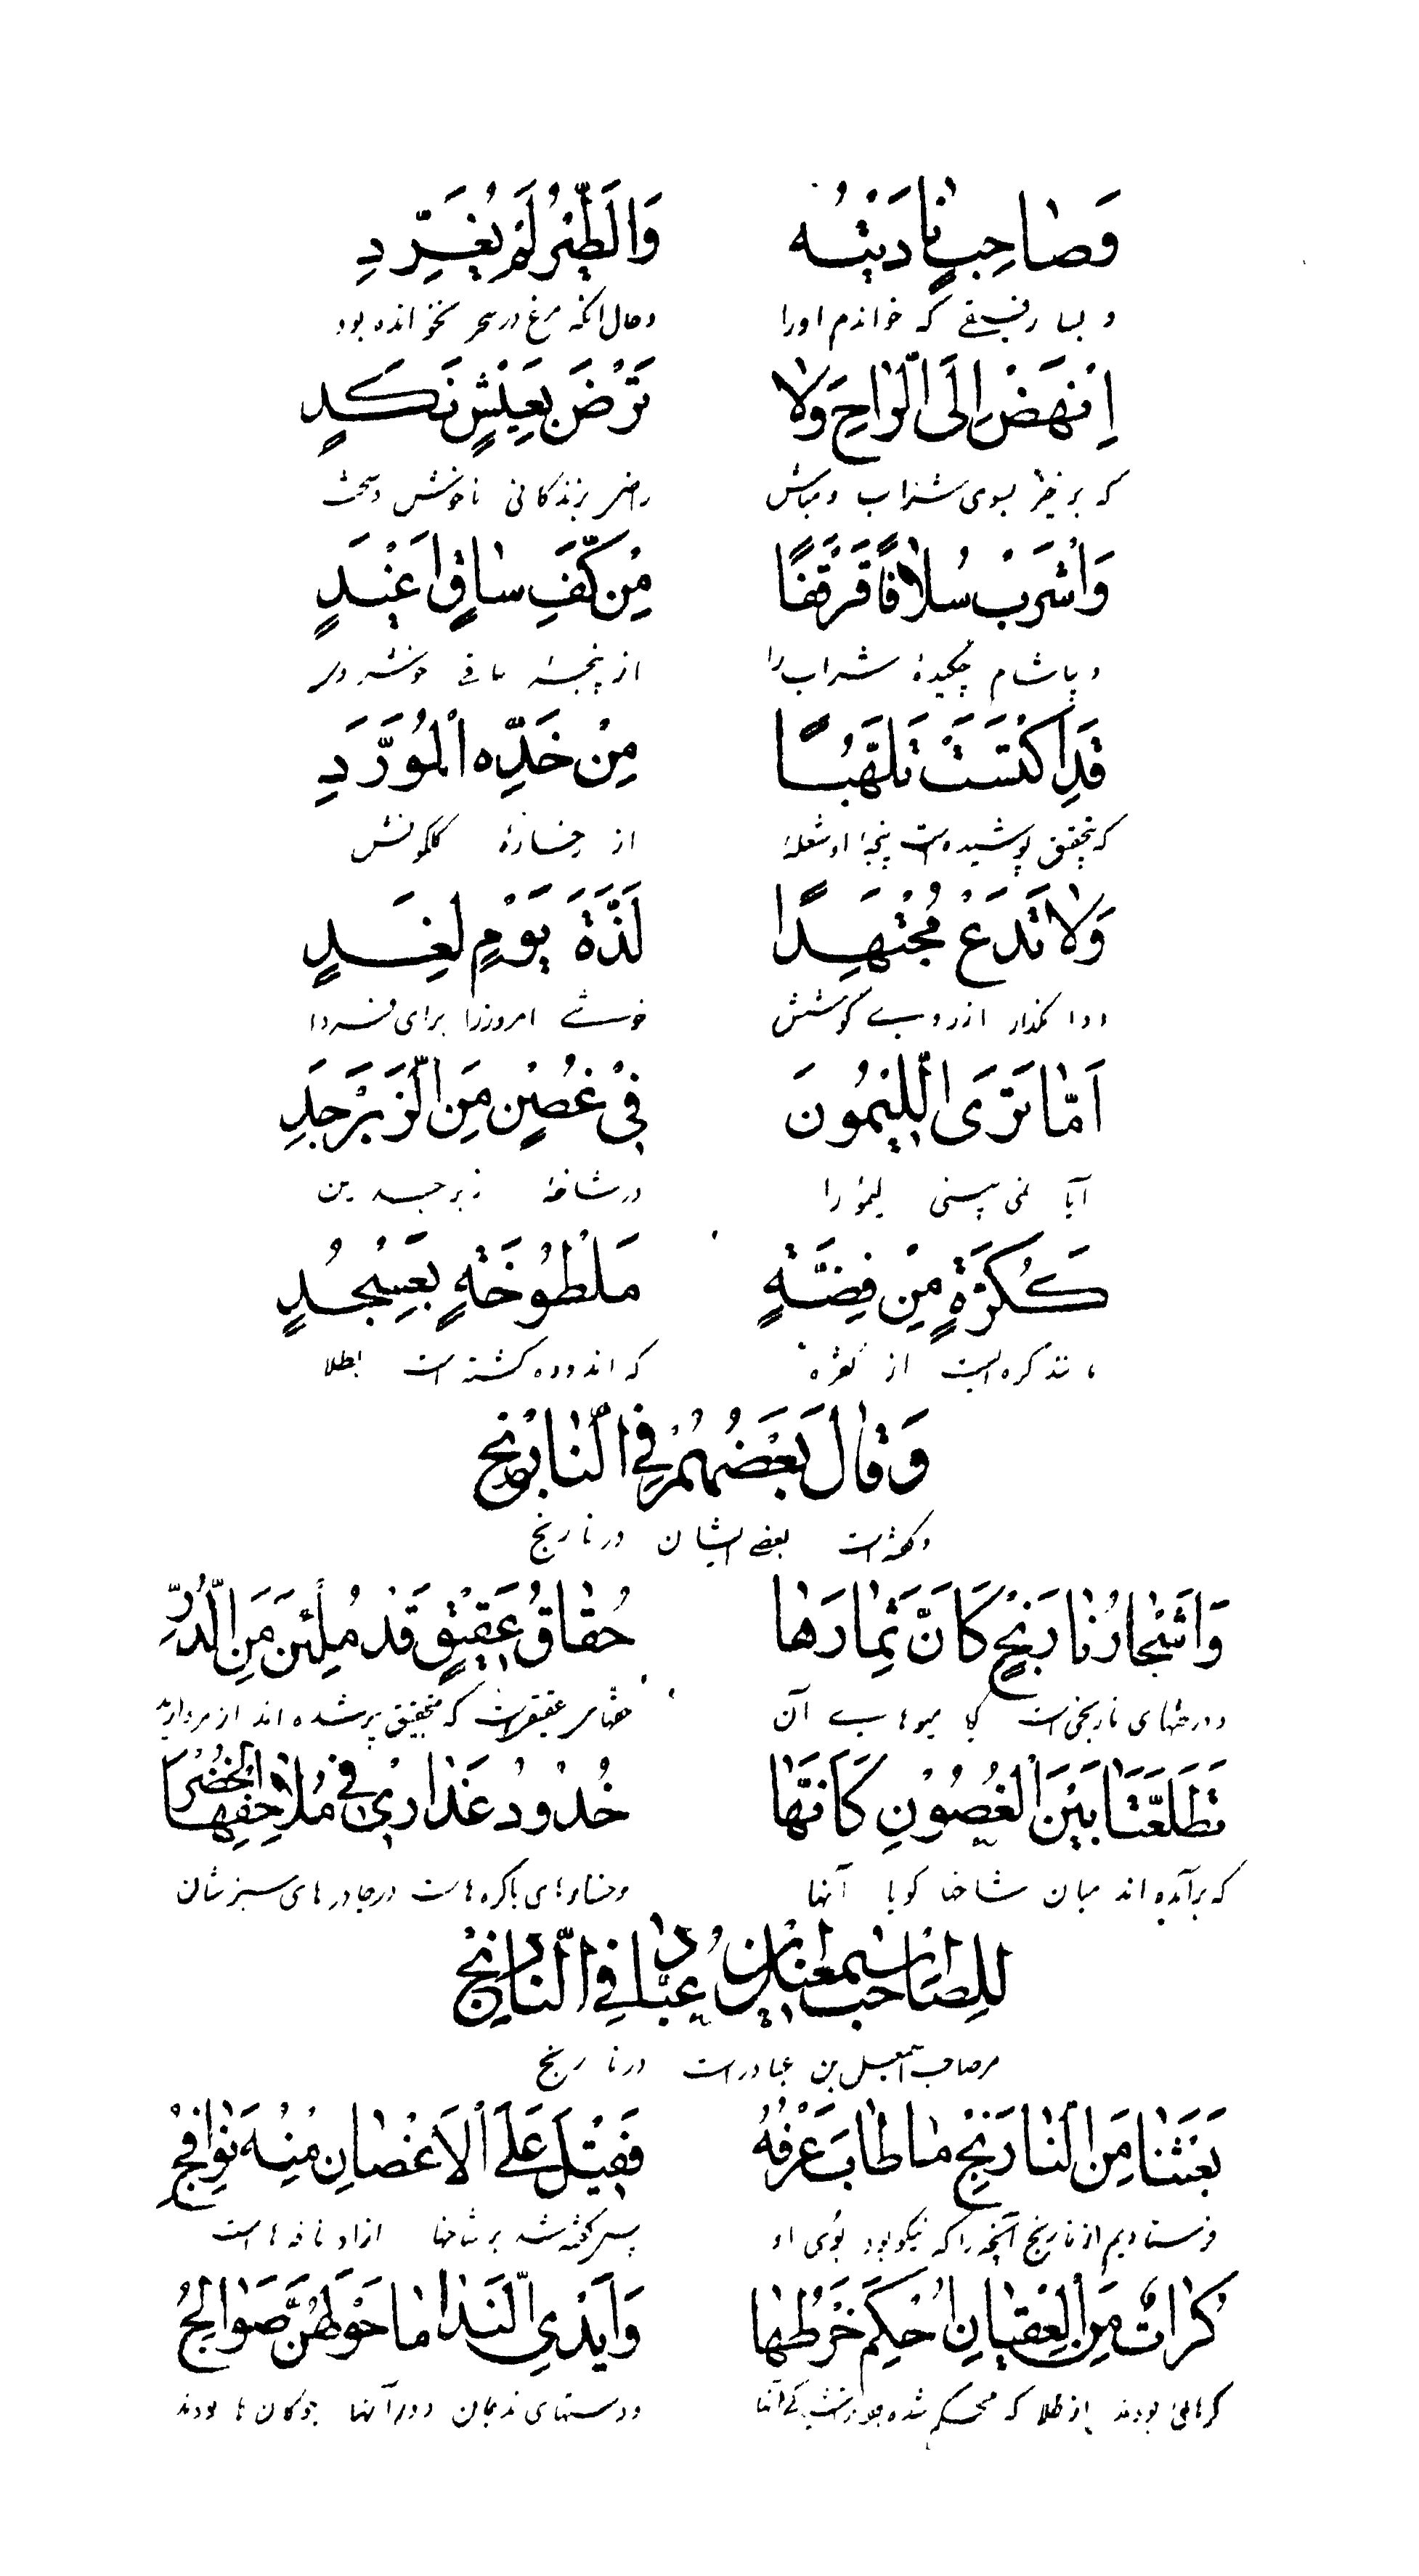 وَصَاحِبٍ نَادَيْتُه وَالطَّيْرُ لَمْ يُغَرِّدِ
و بسا رفیقے که خواندم اورا وحال انکه مرغ در سحر نخوانده بود
اِنْهَضْ اِلَى الرَّاحِ وَلَا تَرْضَ بِعَيْشٍ نَكَدٍ
که برخیز بسوی شراب و مباش راضی بزندکانی ناخوش وسخت
وَاشْرَبْ سُلَافًا قَرْقَفًا مِنْ كَفِّ سَاقٍ اَغْيَدٍ
و بیاشام چکیدهٔ شراب را از پنجهٔ ساقی
قَدِ اكْتَسَتْ تَلَهُّبًا مِنْ خَدِّه الْمُوَرَّدِ
که بتحقیق پوشیده است پنجهٔ او شعلهٔ از رخسارهٔ کلکونش
وَلَا تَدَعْ مُجْتَهِدًا لَذَّةَ يَوْمٍ لِغَدٍ
و وا مگذار ازروے کوشش خوشے امروزرا برای فردا
اَمَا تَرَى اللَّيْمُونَ فِي غُصْنٍ مِنَ الزَّبَرْجَدِ
آیا نمی بینی لیمو را در شاخهٔ زبرجدین
كَكُرَةٍ مِنْ فِضَّةٍ مَلْطُوخَةٍ بِعَسْجُدٍ
مانند کره ایست از نقره که اندوده کشته است بطلا
وَقَالَ بَعْضُهُمْ فِي النَّارَنْجِ
و گفته است بعضے ایشان در نارنج
وَاَشْجَارُ نَارَنْجٍ كَاَنَّ ثِمَارَهَا حُقَاقُ عَقِيْقٍ قَدْ مُلِئْنَ مِنَ الدُّرِّ
و درختهای نارنجی است گویا میوهاے آن حقهای عقیق است که بتحقیق پر شده اند از مروارید
تَطَلَّعَتَا بَيْنَ الْغُصُوْنِ كَاَنَّهَا خُدُوْدُ عَذَارِيْ فِي مُلَاحِفِهَا الْخُضْرِ
که برآمده اند میان شاخها کویا آنها رخساهای باکره هاست در چادرهای سبزشان
لِلصَّاحِب اِسْمٰعِيْل بْنِ عَبَّاد فِي النَّارَنْجِ
مرصاحب اسمعیل بن عباد راست در نارنج
بَعَثْنَا مِنَ النَّارَنْجِ مَا طَابَ عَرْفُهُ فَقِيْلَ عَلَى الْاَغْصَانِ مِنْهُ نَوَافِجُ
فرستادیم از نارنج آنچه را که نیکو بود بُوی او پس گفته شد بر شاخها ازاو نافه ها است
كُرَاتٌ مِنَ الْعِقْيَانِ اُحْكِمَ خَرْطُهَا وَاَيْدِي النَّدَامَا حَوْلَهُنَّ صَوَالِجُ
کرهائی بودند از طلا که محکم شده بود آنها و دستهای ندیمان دور آنها چوکان ها بودند